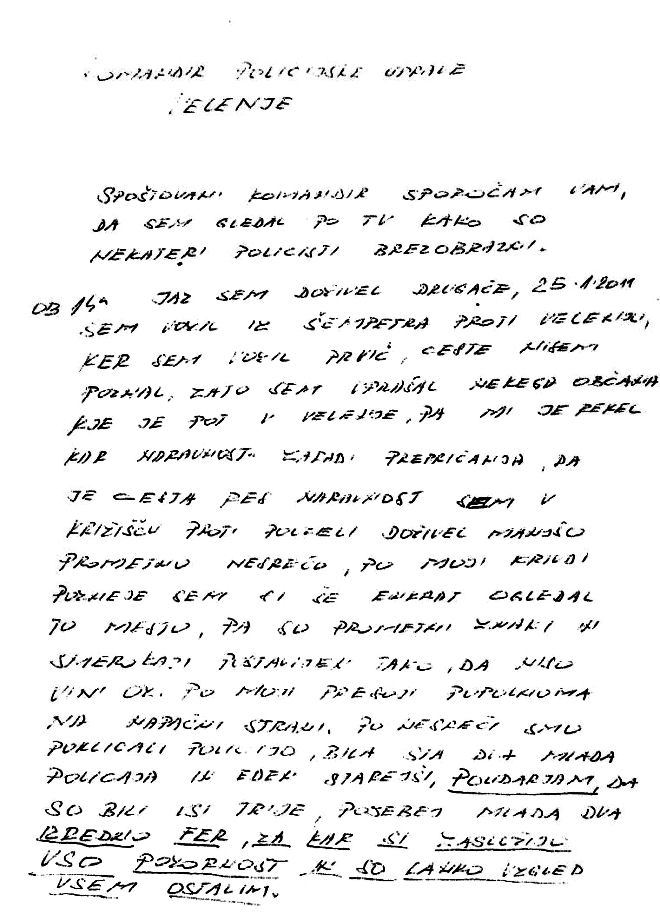 KOMANDIR POLICIJSKE UPRAVE
VELENJE
SPOŠTOVANI KOMANDIR SPOROČAM VAM,
DA SEM GLEDAL PO TV KAKO SO
NEKATERI POLICISTI BREZOBRAZNI.
OB 14h JAZ SEM DOŽIVEL DRUGAČE, 25.1.2011
SEM VOZIL IZ ŠEMPETRA PROTI VELENJU,
KER SEM VOZIL PRVIČ, CESTE NISEM
POZNAL, ZATO SEM VPRAŠAL NEKEGA OBČANA
KJE JE POT V VELENJE, PA MI JE REKEL
KAR NARAVNOST. ZARADI PREPRIČANJA, DA
JE CESTA RES NARAVNOST SEM V
KRIŽIŠČU PROTI POLZELI DOŽIVEL MANJŠO
PROMETNO NESREČO, PO MOJI KRIVDI
POZNEJE SEM SI ŠE ENKRAT OGLEDAL
TO MESTO, PA SO PROMETNI ZNAKI IN
SMEROKAZI POSTAVLJENI TAKO, DA NISO
VINI OZ. PO MOJI PRESOJI POPOLNOMA
NA NAPAČNI STRANI. PO NESREČI SMO
POKLICALI POLICIJO, BILA STA DVA MLADA
POLICAJA IN EDEN STAREJŠI, POUDARJAM, DA
SO BILI VSI TRIJE, POSEBEJ MLADA DVA
IZREDNO FER, ZA KAR SI ZASLUŽIJO
VSO POZORNOST IN SO LAHKO VZGLED
VSEM OSTALIM.